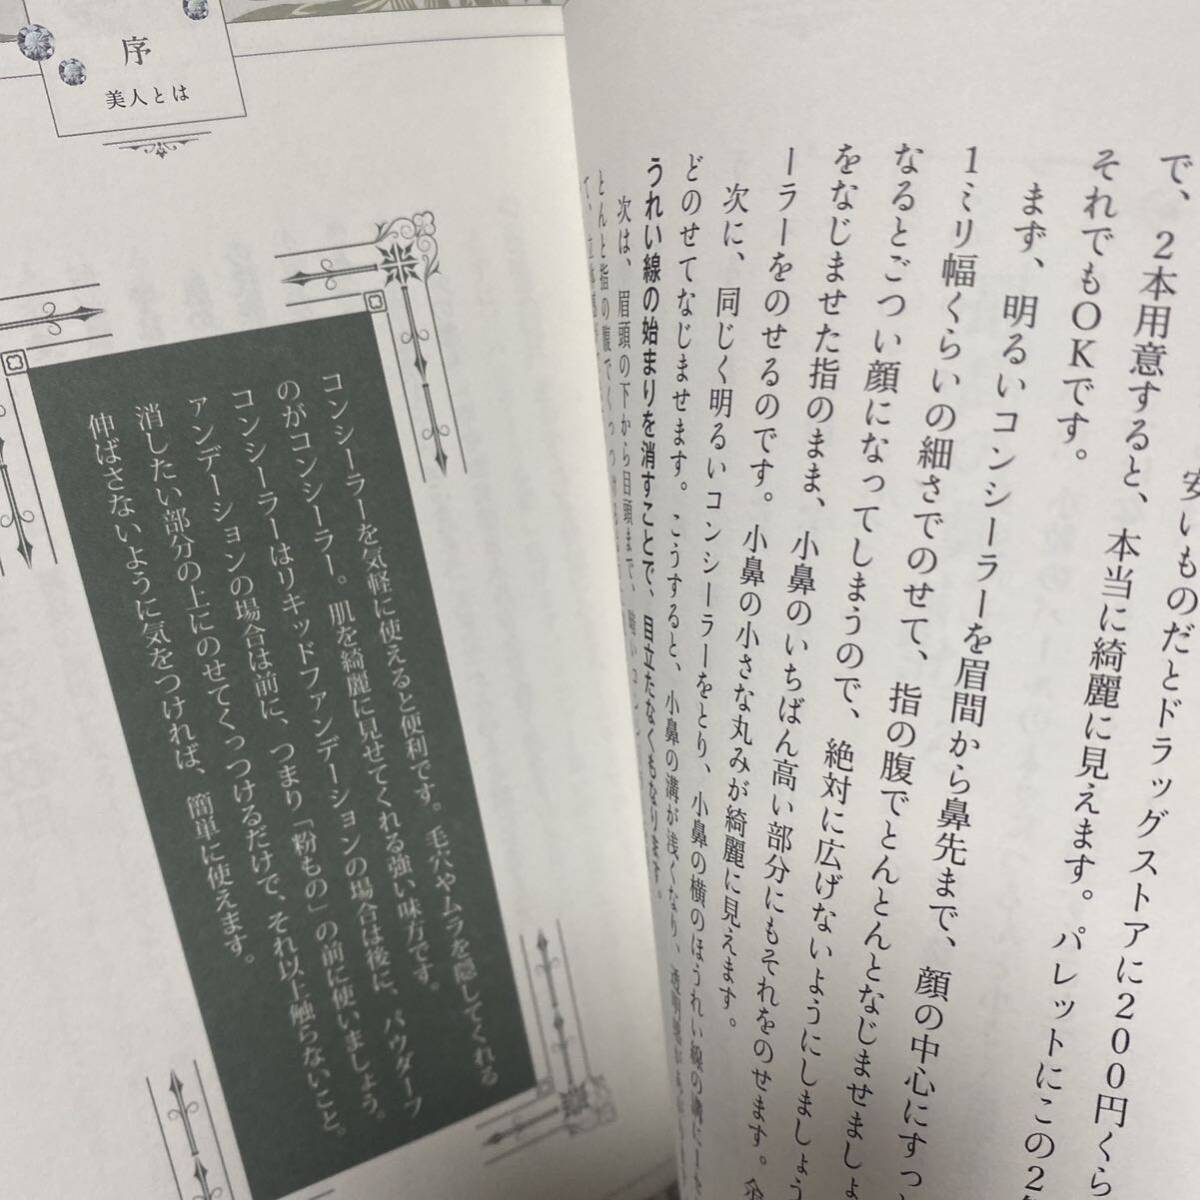 安いものだとドラッグストアに200円くら
で、2本用意すると、本当に綺麗に見えます。パレットにこの2
それでもOKです。
まず、明るいコンシーラーを眉間から鼻先まで、顔の中心にすっ
1ミリ幅くらいの細さでのせて、指の腹でとんとんとなじませましょ
なるとごつい顔になってしまうので、絶対に広げないようにしましょう
をなじませた指のまま、小鼻のいちばん高い部分にもそれをのせます。
ーラーをのせるのです。小鼻の小さな丸みが綺麗に見えます。
次に、同じく明るいコンシーラーをとり、小鼻の横のほうれい線の溝に
どのせてなじませます。こうすると、小鼻の溝が浅くなり、
うれい線の始まりを消すことで、目立たなくもなります。
次は、眉頭の下から目頭まで、
とんと指の腹で
序
美人とは
コンシーラーを気軽に使えると便利です。毛穴やムラを隠してくれる
のがコンシーラー。肌を綺麗に見せてくれる強い味方です。
コンシーラーはリキッドファンデーションの場合は後に、パウダーフ
ァンデーションの場合は前に、つまり「粉もの」の前に使いましょう。
消したい部分の上にのせてくっつけるだけで、それ以上触らないこと。
伸ばさないように気をつければ、簡単に使えます。